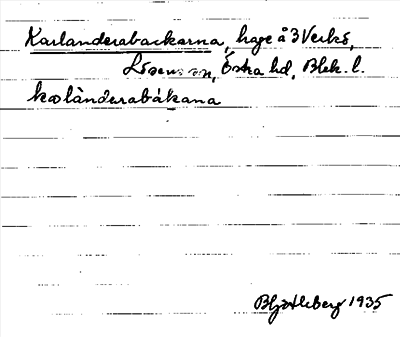 Karlanderabackarna, hage å 3 Verkö,
Lösens sn, Östra hd, Blek. l.
kaländerabákana
B Hjortleberg 1935